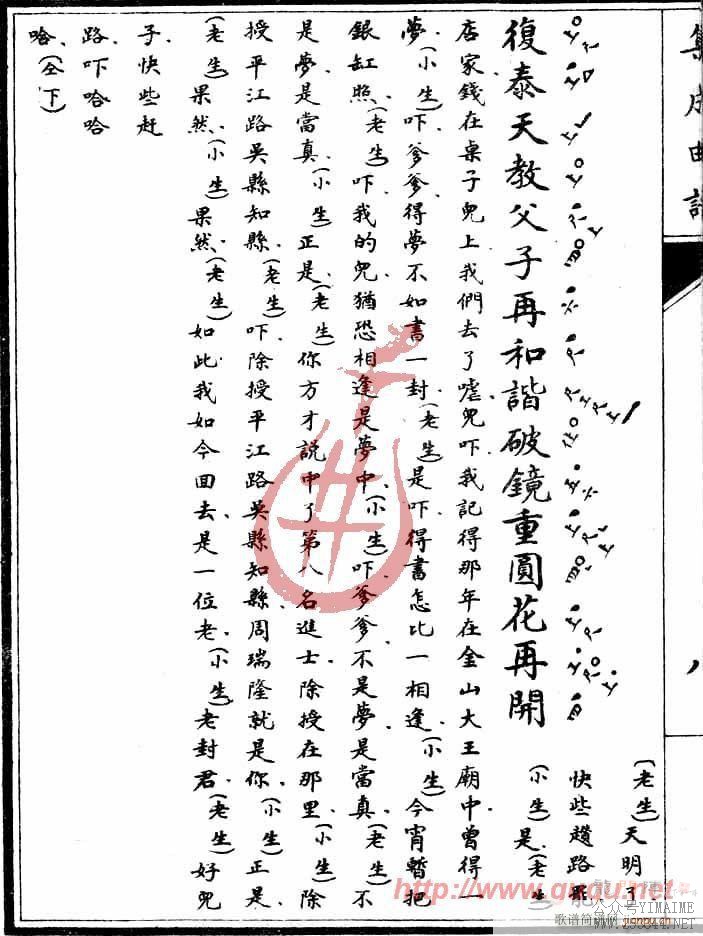 集成曲譜
復泰天教父子再和諧破鏡重圓花再開
(老生)天明了
快些趲路罷
(小生)是(老生
店家錢在桌子兒上我們去了嗄兒吓我記得那年在金山大王廟中曾得一
夢(小生)吓爹爹得夢不如書一封(老生)是吓得書怎比一相逢(小生)今宵暫把
銀缸照(老生)吓我的兒猶恐相逢是夢中(小生)吓爹爹不是夢是當真(老生)不
是夢是當真(小生)正是(老生)你方才說中了第八名進士除授在那里(小生)除
授平江路吳縣知縣(老生)吓除授平江路吳縣知縣周瑞隆就是你(小生)正是
(老生)果然(小生)果然(老生)如此我如今回去是一位老(小生)老封君(老生)好兒
子快些赶
路吓哈哈
哈(仝下)
公众号YIMAIME